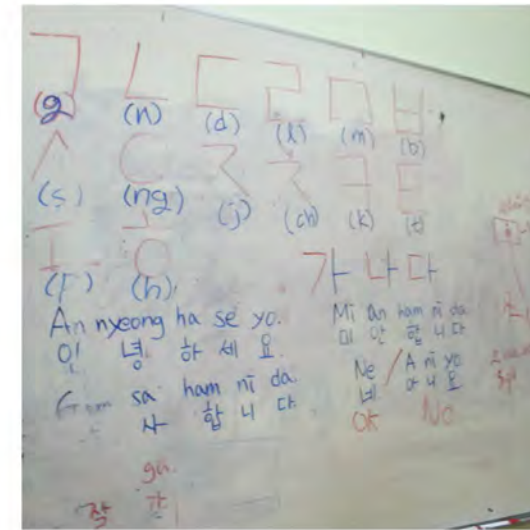 ㄱ ㄴ ㄷ ㄹ ㅁ ㅂ
(g) (n) (d) (l) (m) (b)
ㅅ ㅇ ㅈ ㅊ ㅋ ㅌ
(s) (ng) (j) (ch) (k) (t)
ㅍ ㅎ
(p) (h)
가 나 다
An nyeong ha se yo.
안 녕 하 세 요.
Gam sa ham ni da.
사 합 니 다
Mi an ham ni da
미 안 합 니 다
Ne / A ni yo
네 아 니 요
OK No